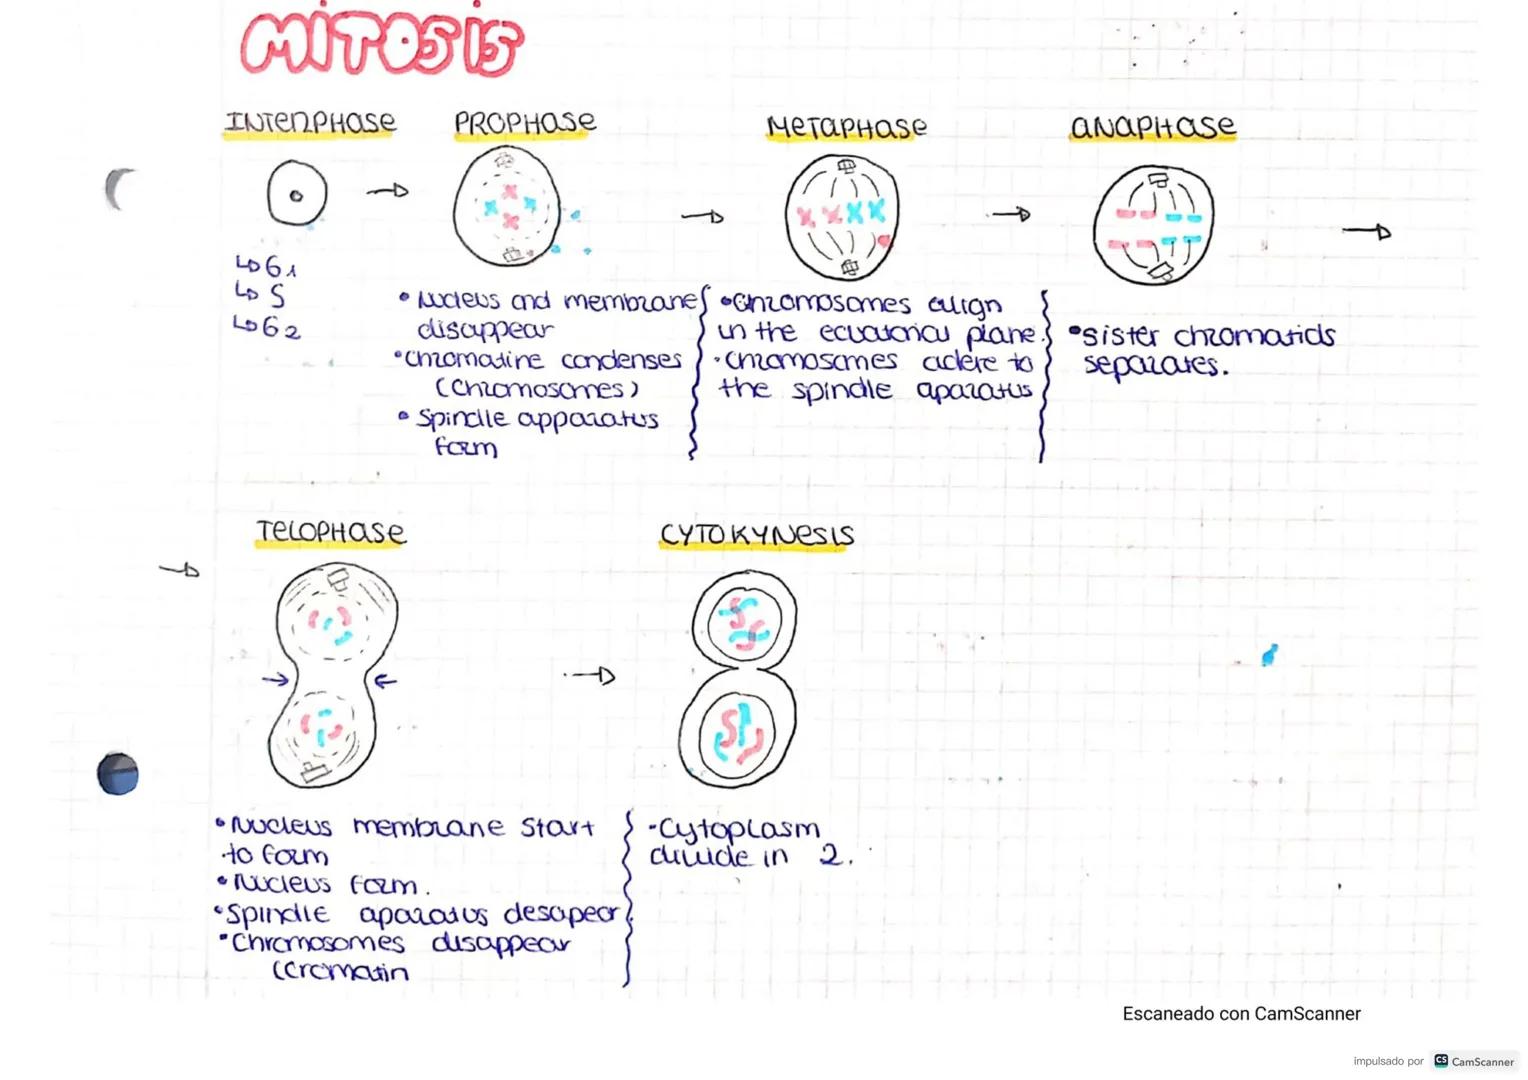 MITOSIS
INTERPHASE
PROPHASE
METAPHASE
ANAPHASE
G1
S
G2
• Nucleus and membrane
disappear
• Chromatine condenses
(Chromosomes)
• Spindle apparatus
form
• Chromosomes align
in the ecuatorial plane.
• Chromosomes adere to
the spindle aparatus
• Sister chromatids
separates.
TELOPHASE
CYTOKYNESIS
• Nucleus membrane start
to form
• Nucleus form.
• Spindle aparatus desapear
• Chromosomes disappear
(Cromatin
- Cytoplasm
divide in 2.
Escaneado con CamScanner
impulsado por CS CamScanner